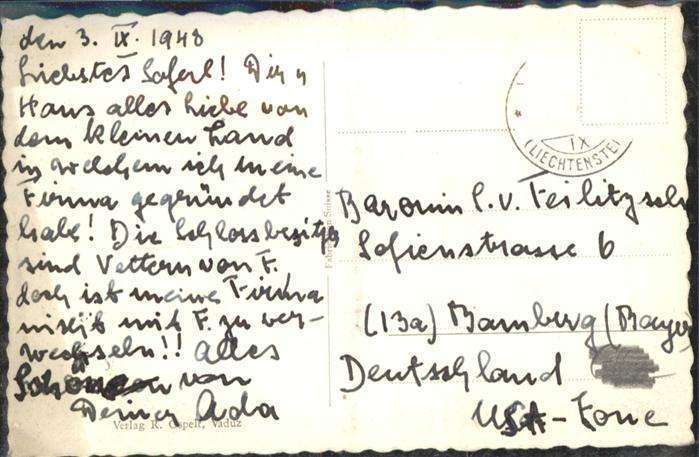 den 3. IX. 1948
Liebstes Soferl! Dir u
Hans alles Liebe von
dem kleinen Land
in welchem ich meine
Firma gegründet
habe! Die Schlossbesitzer
sind Vettern von F.,
doch ist meine Firma
nicht mit F. zu ver-
wechseln!! Alles
Schöne von
Deiner Ada
Verlag R. Ospelt, Vaduz
Suisse
IX
(LIECHTENSTEI
Baronin S. v. Feilitzsch
Sofienstrasse 6
(13a) Bamberg (Bayer
Deutschland
USA-Zone